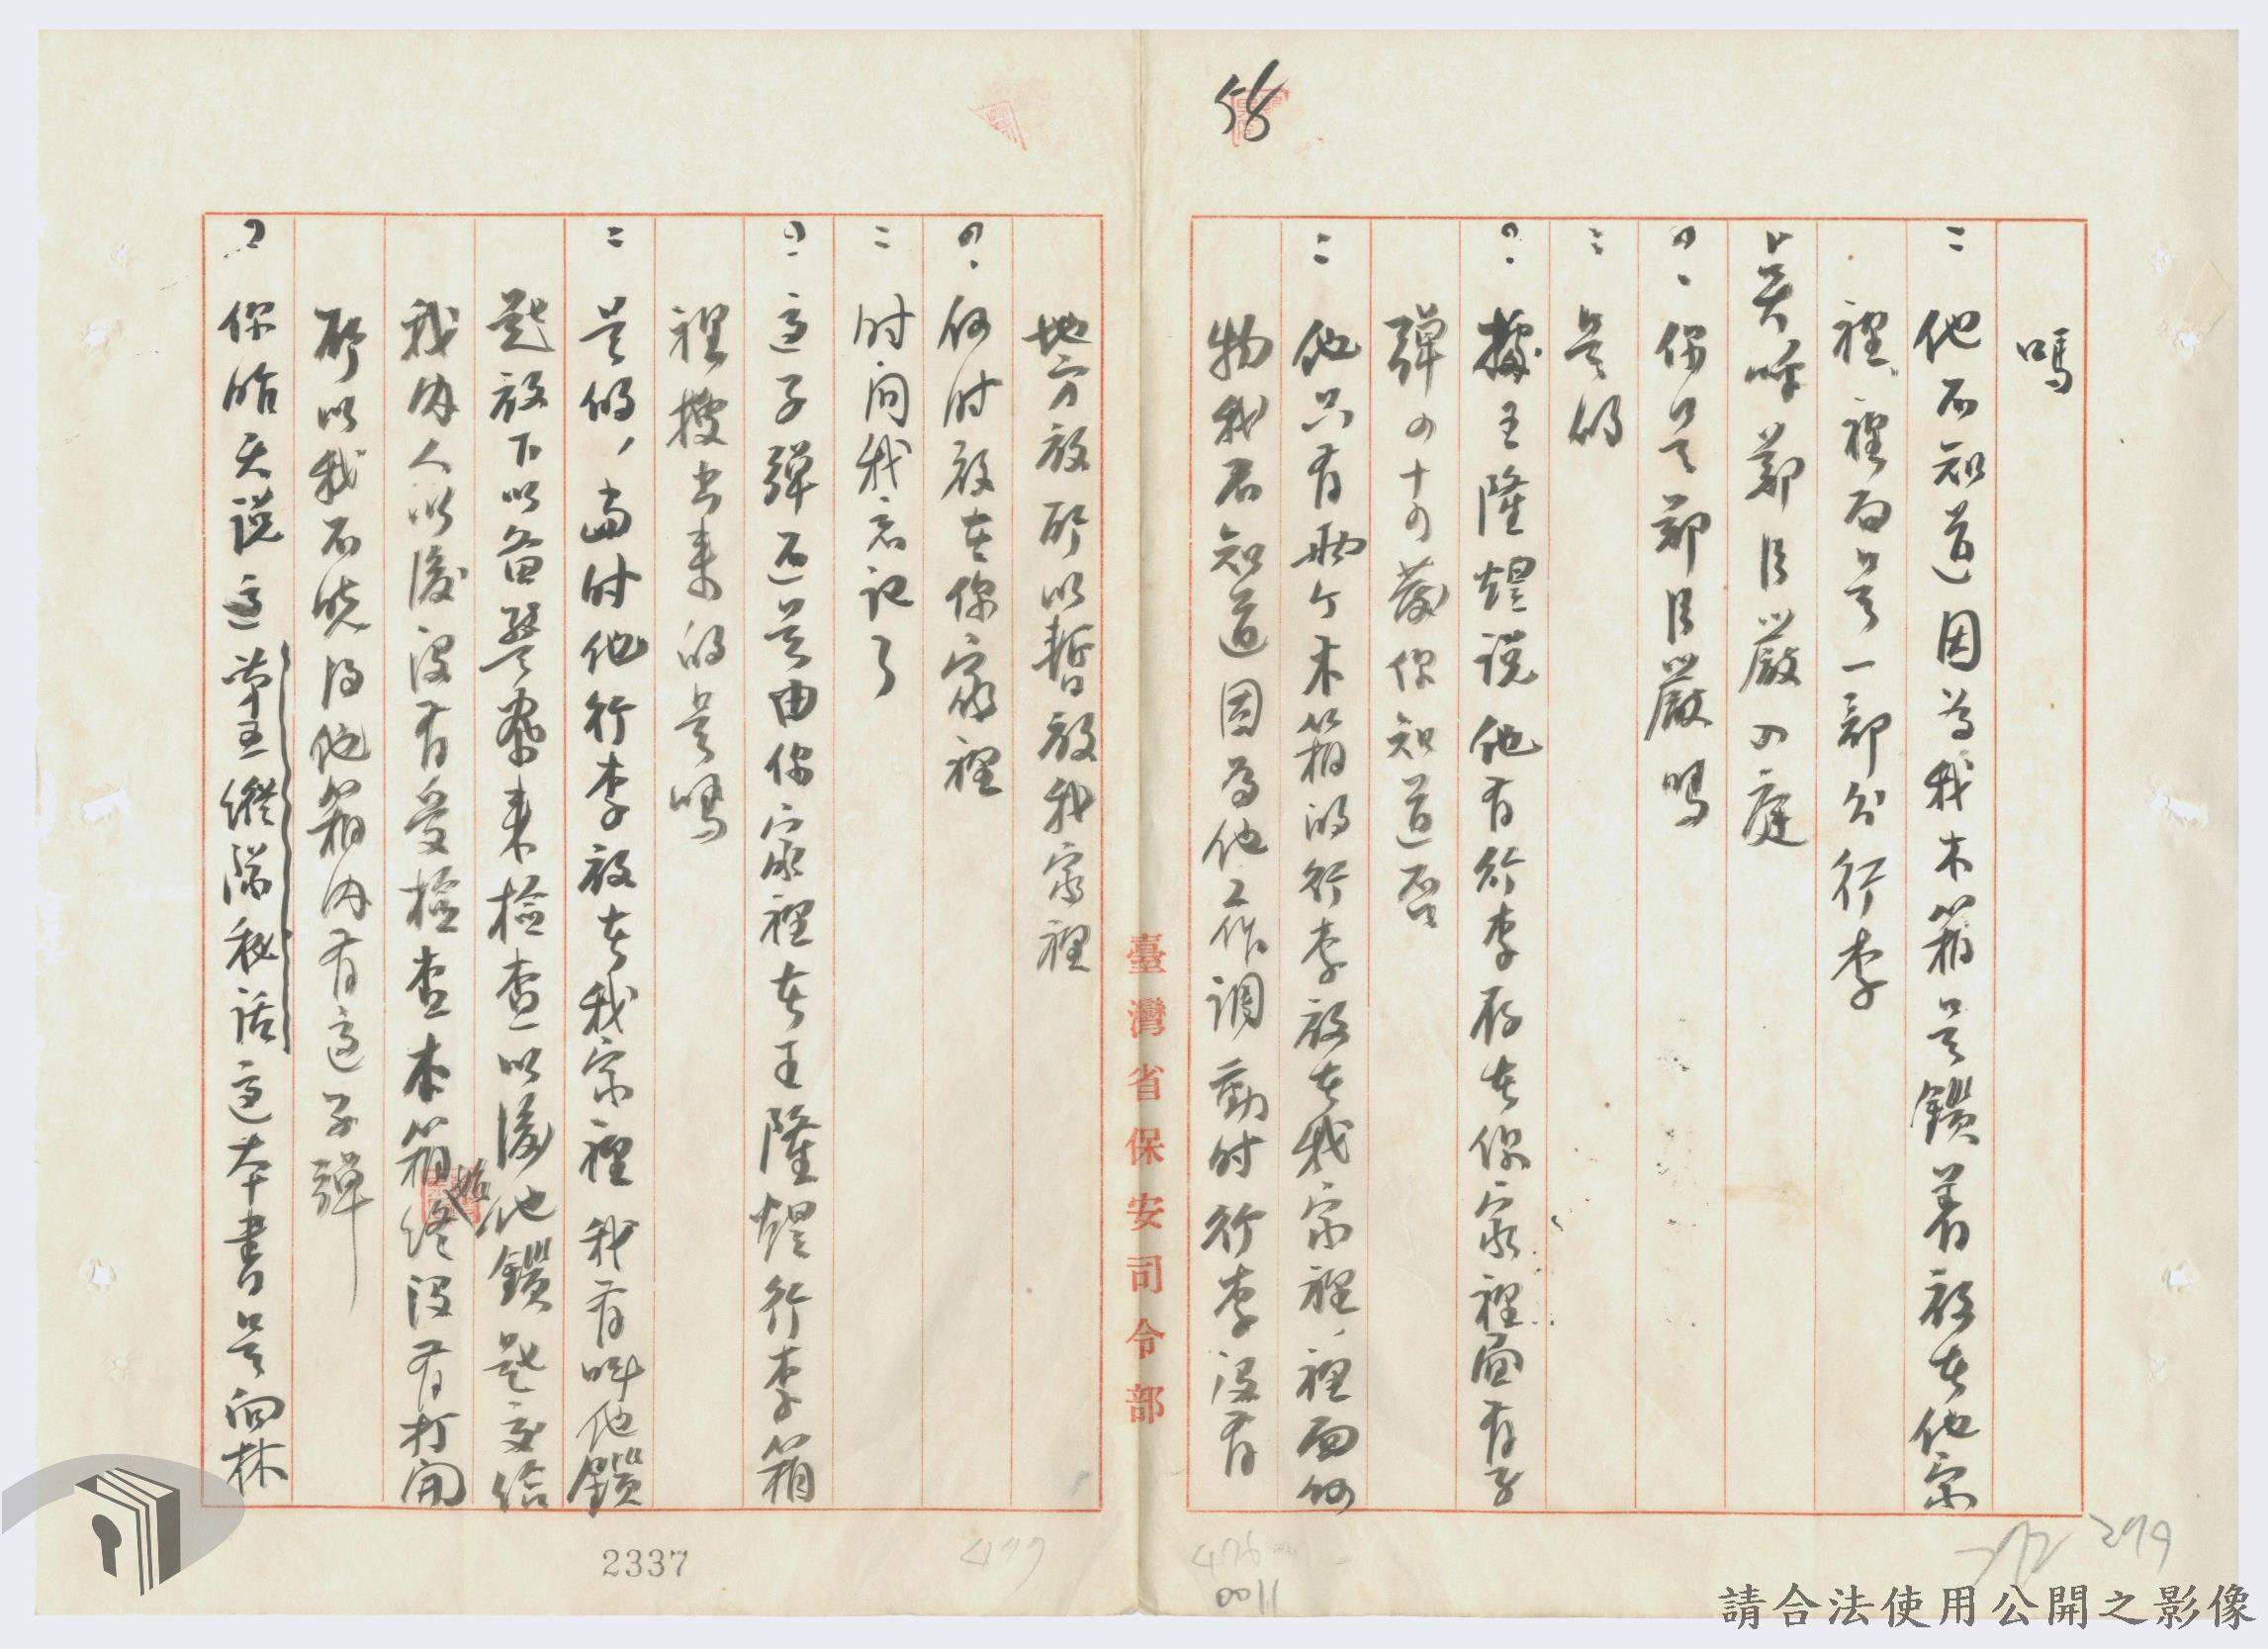 58
嗎
: 他不知道因為我木箱是鎖着放在他家
裡、裡面是一部分行李
點呼鄭臣嚴入庭
?、你是鄭臣嚴嗎
: 是的
?. 據王隆煜說他有行李存在你家裡面有子
彈四十四發你知道否
: 他只有兩个木箱的行李放在我家裡、裡面何
物我不知道因為他工作調動时行李没有
臺灣省保安司令部
地方放所以暫放我家裡
?. 何时放在你家裡
: 时间我忘记了
?. 這子彈还是由你家裡在王隆煜行李箱
裡搜出来的是嗎
: 是的,當时他行李放在我家裡我有叫他鎖
匙放下以备警察来檢查以後他鎖匙交给
我内人以後没有受檢查本箱始终没有打開
所以我不曉得他箱内有這子彈
? 你昨天說這單王縱隊秘话這本書是向林
2337
477
476
0011
279
請合法使用公開之影像